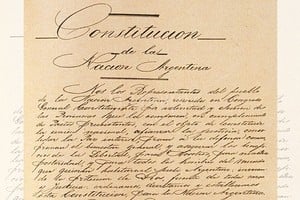 Constitucion
de la
Nacion Argentina
Nos los Representantes del pueblo
de la Nacion Argentina, reunidos en Congreso
General Constituyente por voluntad y eleccion de
las Provincias que la componen, en cumplimiento
de Pactos preexistentes, con el objeto de constituir
la union nacional, afianzar la justicia, conso
lidar la Paz interior, proveer a la defensa comun,
promover el bienestar general, y asegurar los bene
ficios de la libertad, para nosotros, para nuestra
posteridad, y para todos los hombres del mundo
que quieran habitar en el suelo Argentino, invocan
do la proteccion de Dios, fuente de toda razon
y Justicia, ordenamos, decretamos y establecemos
esta Constitucion para la Nacion Argentina